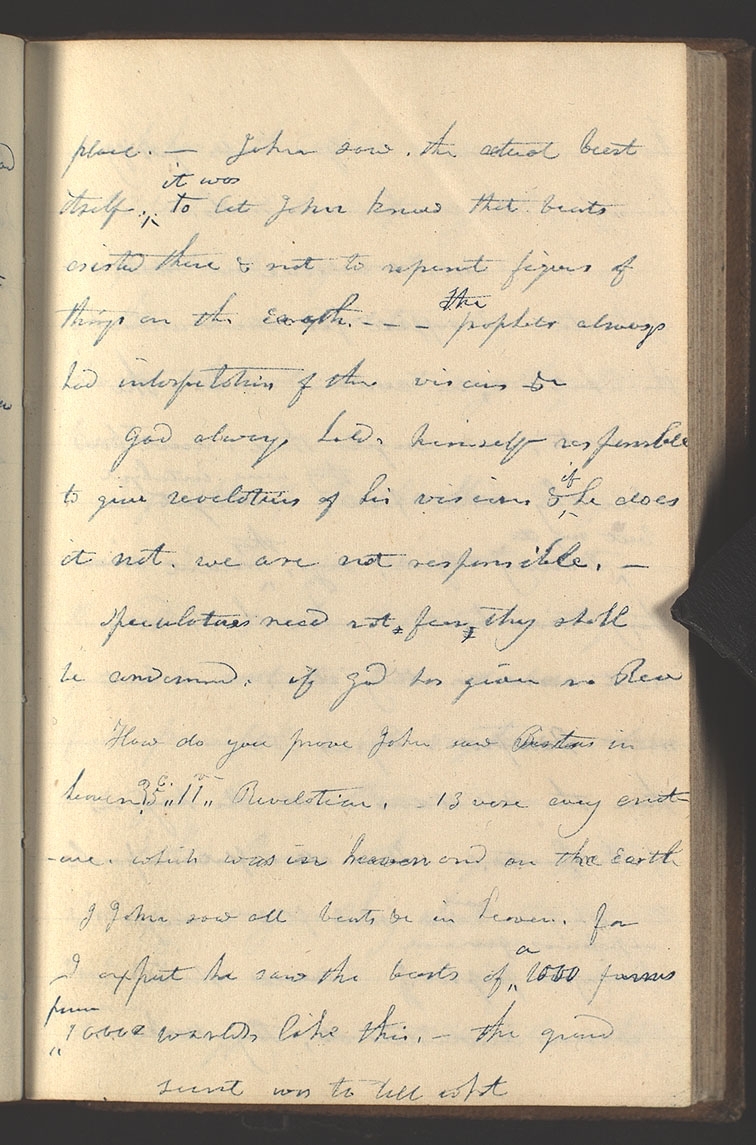 place. — John saw. the actual beast
it was
itself. ^ to let John know that beasts
existed there & not to represent figures of
things on the Eaarth. - - - the prophets always
had interpetations of their visions &c
God always holds himself responsible
to give revelations of his visions & if he does
it not. we are not responsible. —
speculators need not fear they shall
be condemned. if God has given no Rev
How do you prove John saw Beastes in
heaven? 5 c. 11 v— Revelation. - 13 verse every creat
-ure. which was in heaven and on the Earth
I John saw all beasts &c in heaven. for
a
I expect he saw the beasts of " 1000 forms
from
" 10000 worlds like this. — the grand
secret was to tell what